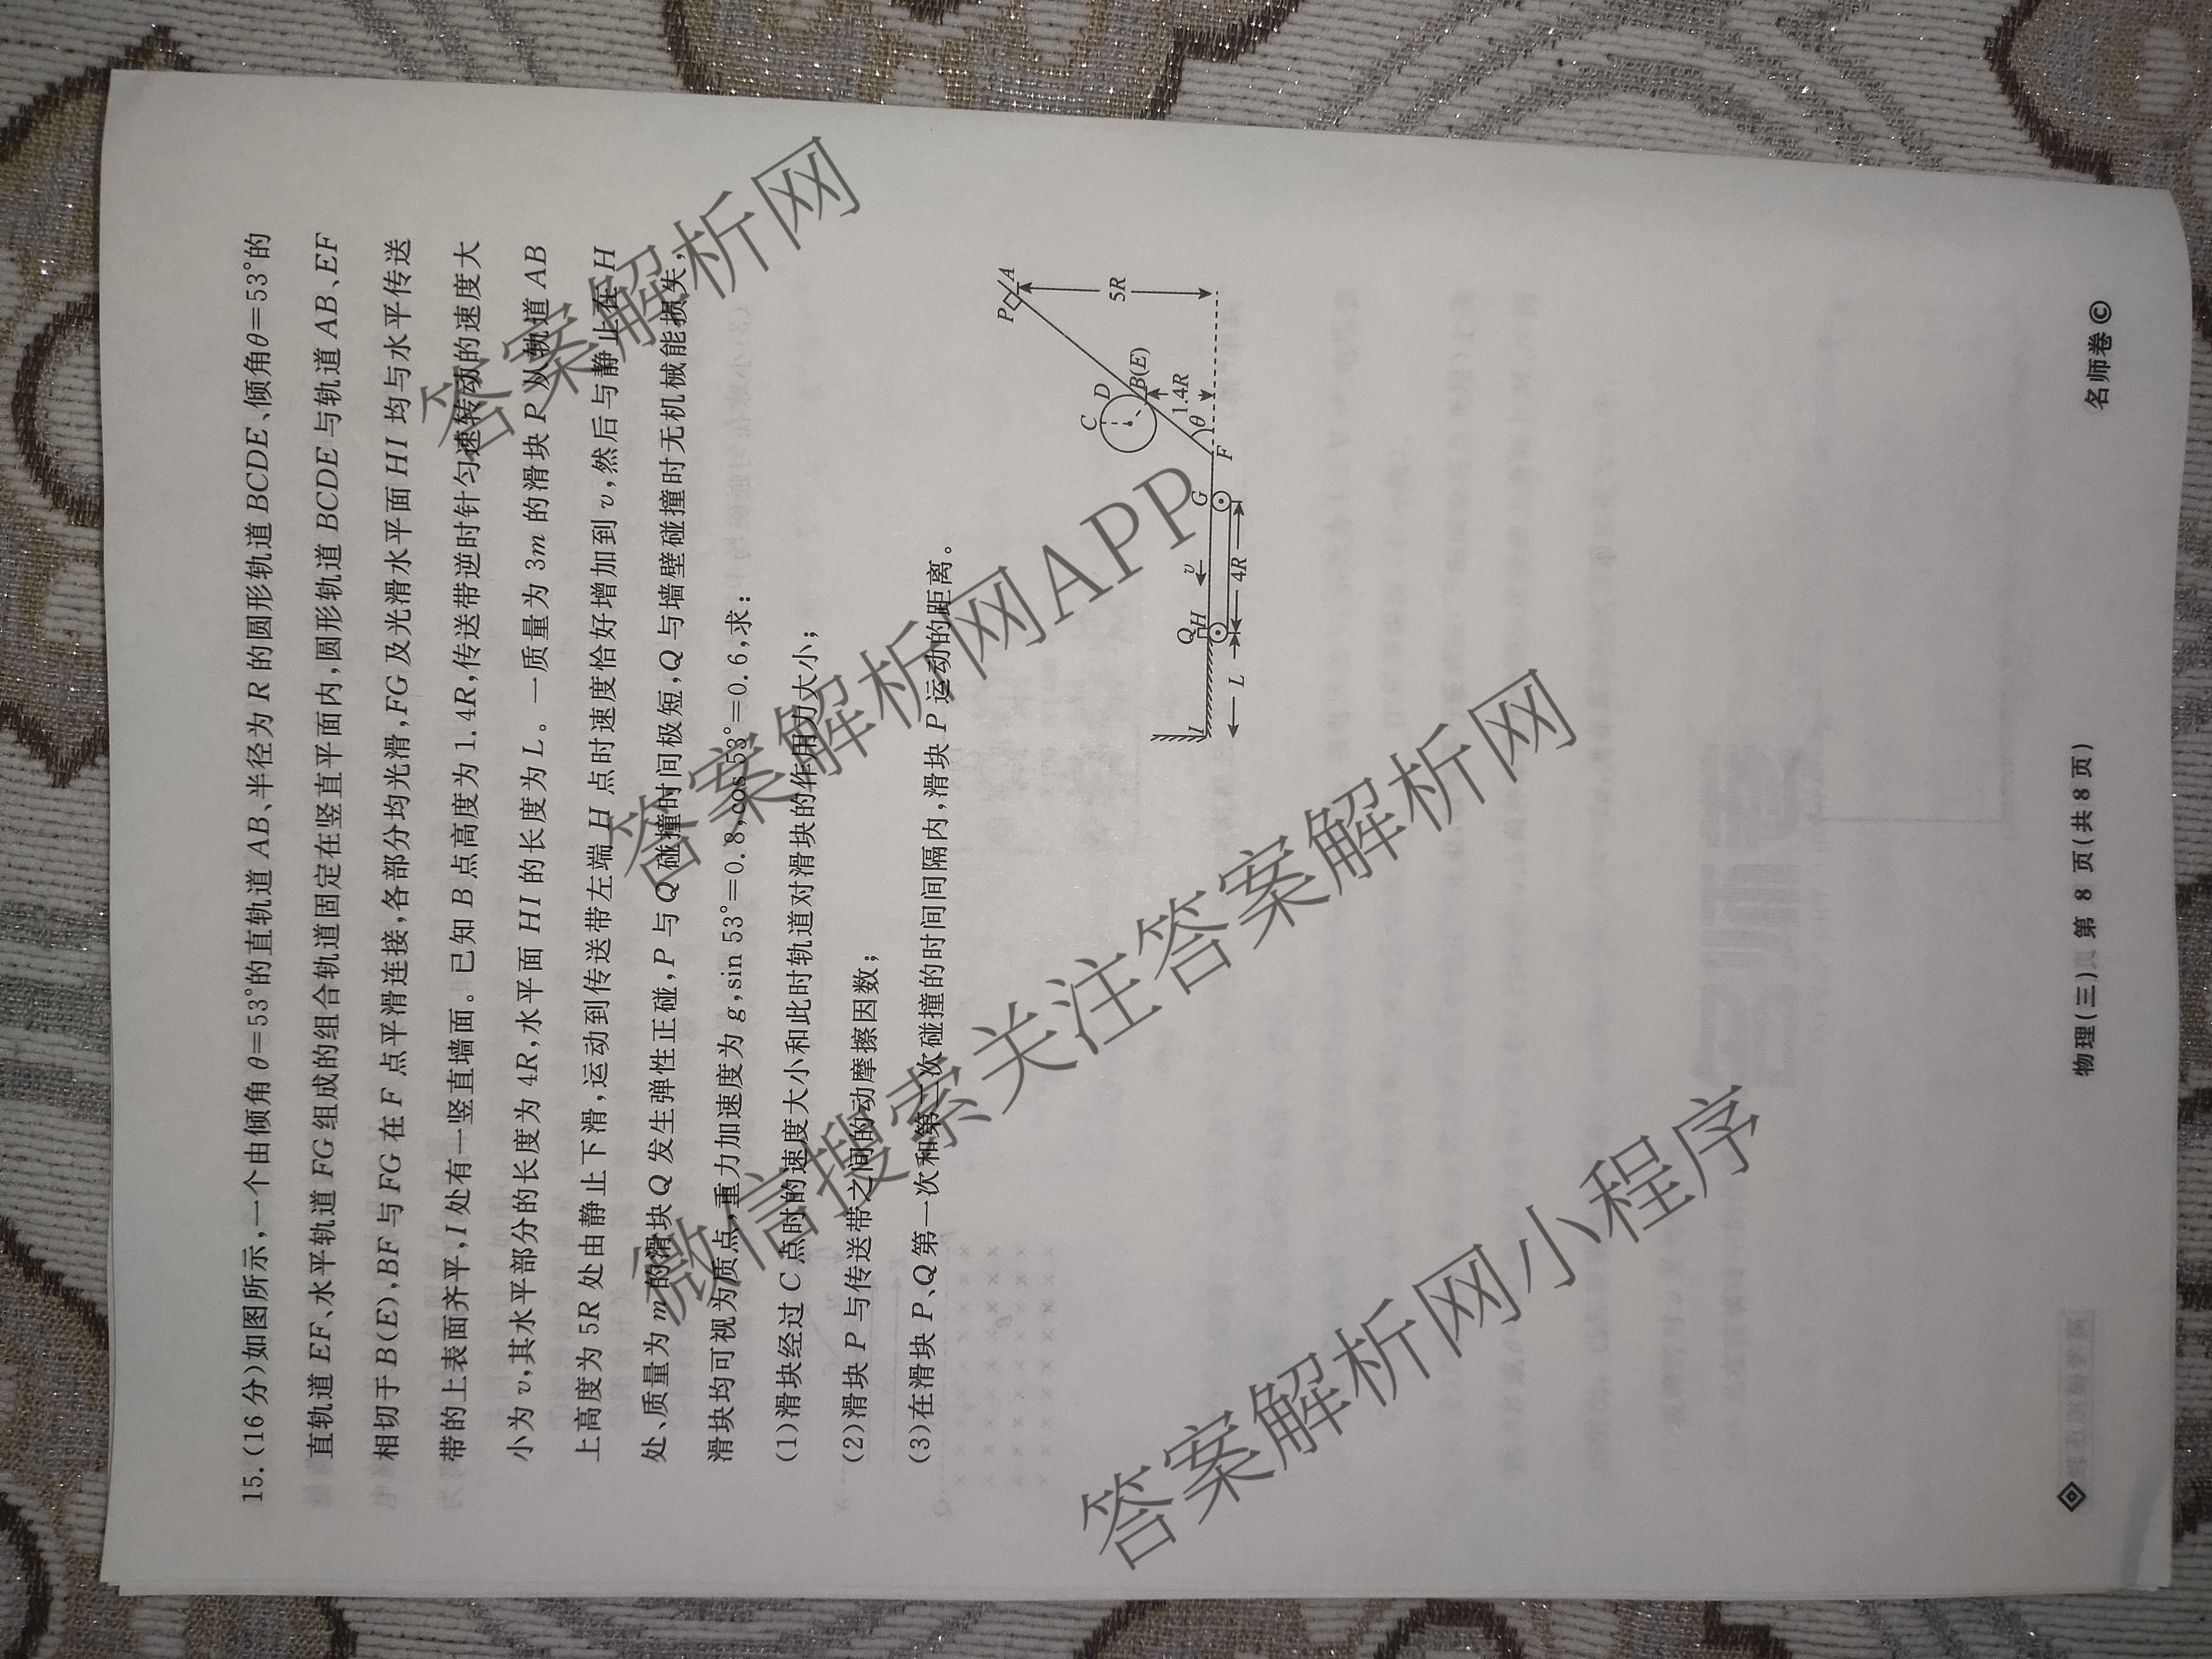 15.(16分)如图所示,一个由倾角θ=53°的直轨道AB、半径为R的圆形轨道BCDE、倾角θ=53°的
直轨道EF、水平轨道FG组成的组合轨道固定在竖直平面内,圆形轨道BCDE与轨道AB、EF
相切于B(E),BF与FG在F点平滑连接,各部分均光滑,FG及光滑水平面HI均与水平传送
带的上表面齐平,I处有一竖直墙面。已知B点高度为1.4R,传送带逆时针匀速转动的速度大
小为v,其水平部分的长度为4R,水平面HI的长度为L。一质量为3m的滑块P从轨道AB
上高度为5R处由静止下滑,运动到传送带左端H点时速度恰好增加到v,然后与静止在H
处、质量为m的滑块Q发生弹性正碰,P与Q碰撞时间极短,Q与墙壁碰撞时无机械能损失,
滑块均可视为质点,重力加速度为g,sin 53°=0.8,cos 53°=0.6,求:
(1)滑块经过C点时的速度大小和此时轨道对滑块的作用力大小;
(2)滑块P与传送带之间的动摩擦因数;
(3)在滑块P、Q第一次和第二次碰撞的时间间隔内,滑块P运动的距离。
P
A
C
D
B(E)
5R
1.4R
θ
F
G
v
Q
H
4R
L
I
物理(三) 第 8 页(共 8 页)
名师卷©
答案解析网
答案解析网APP
微信搜索关注答案解析网
答案解析网小程序